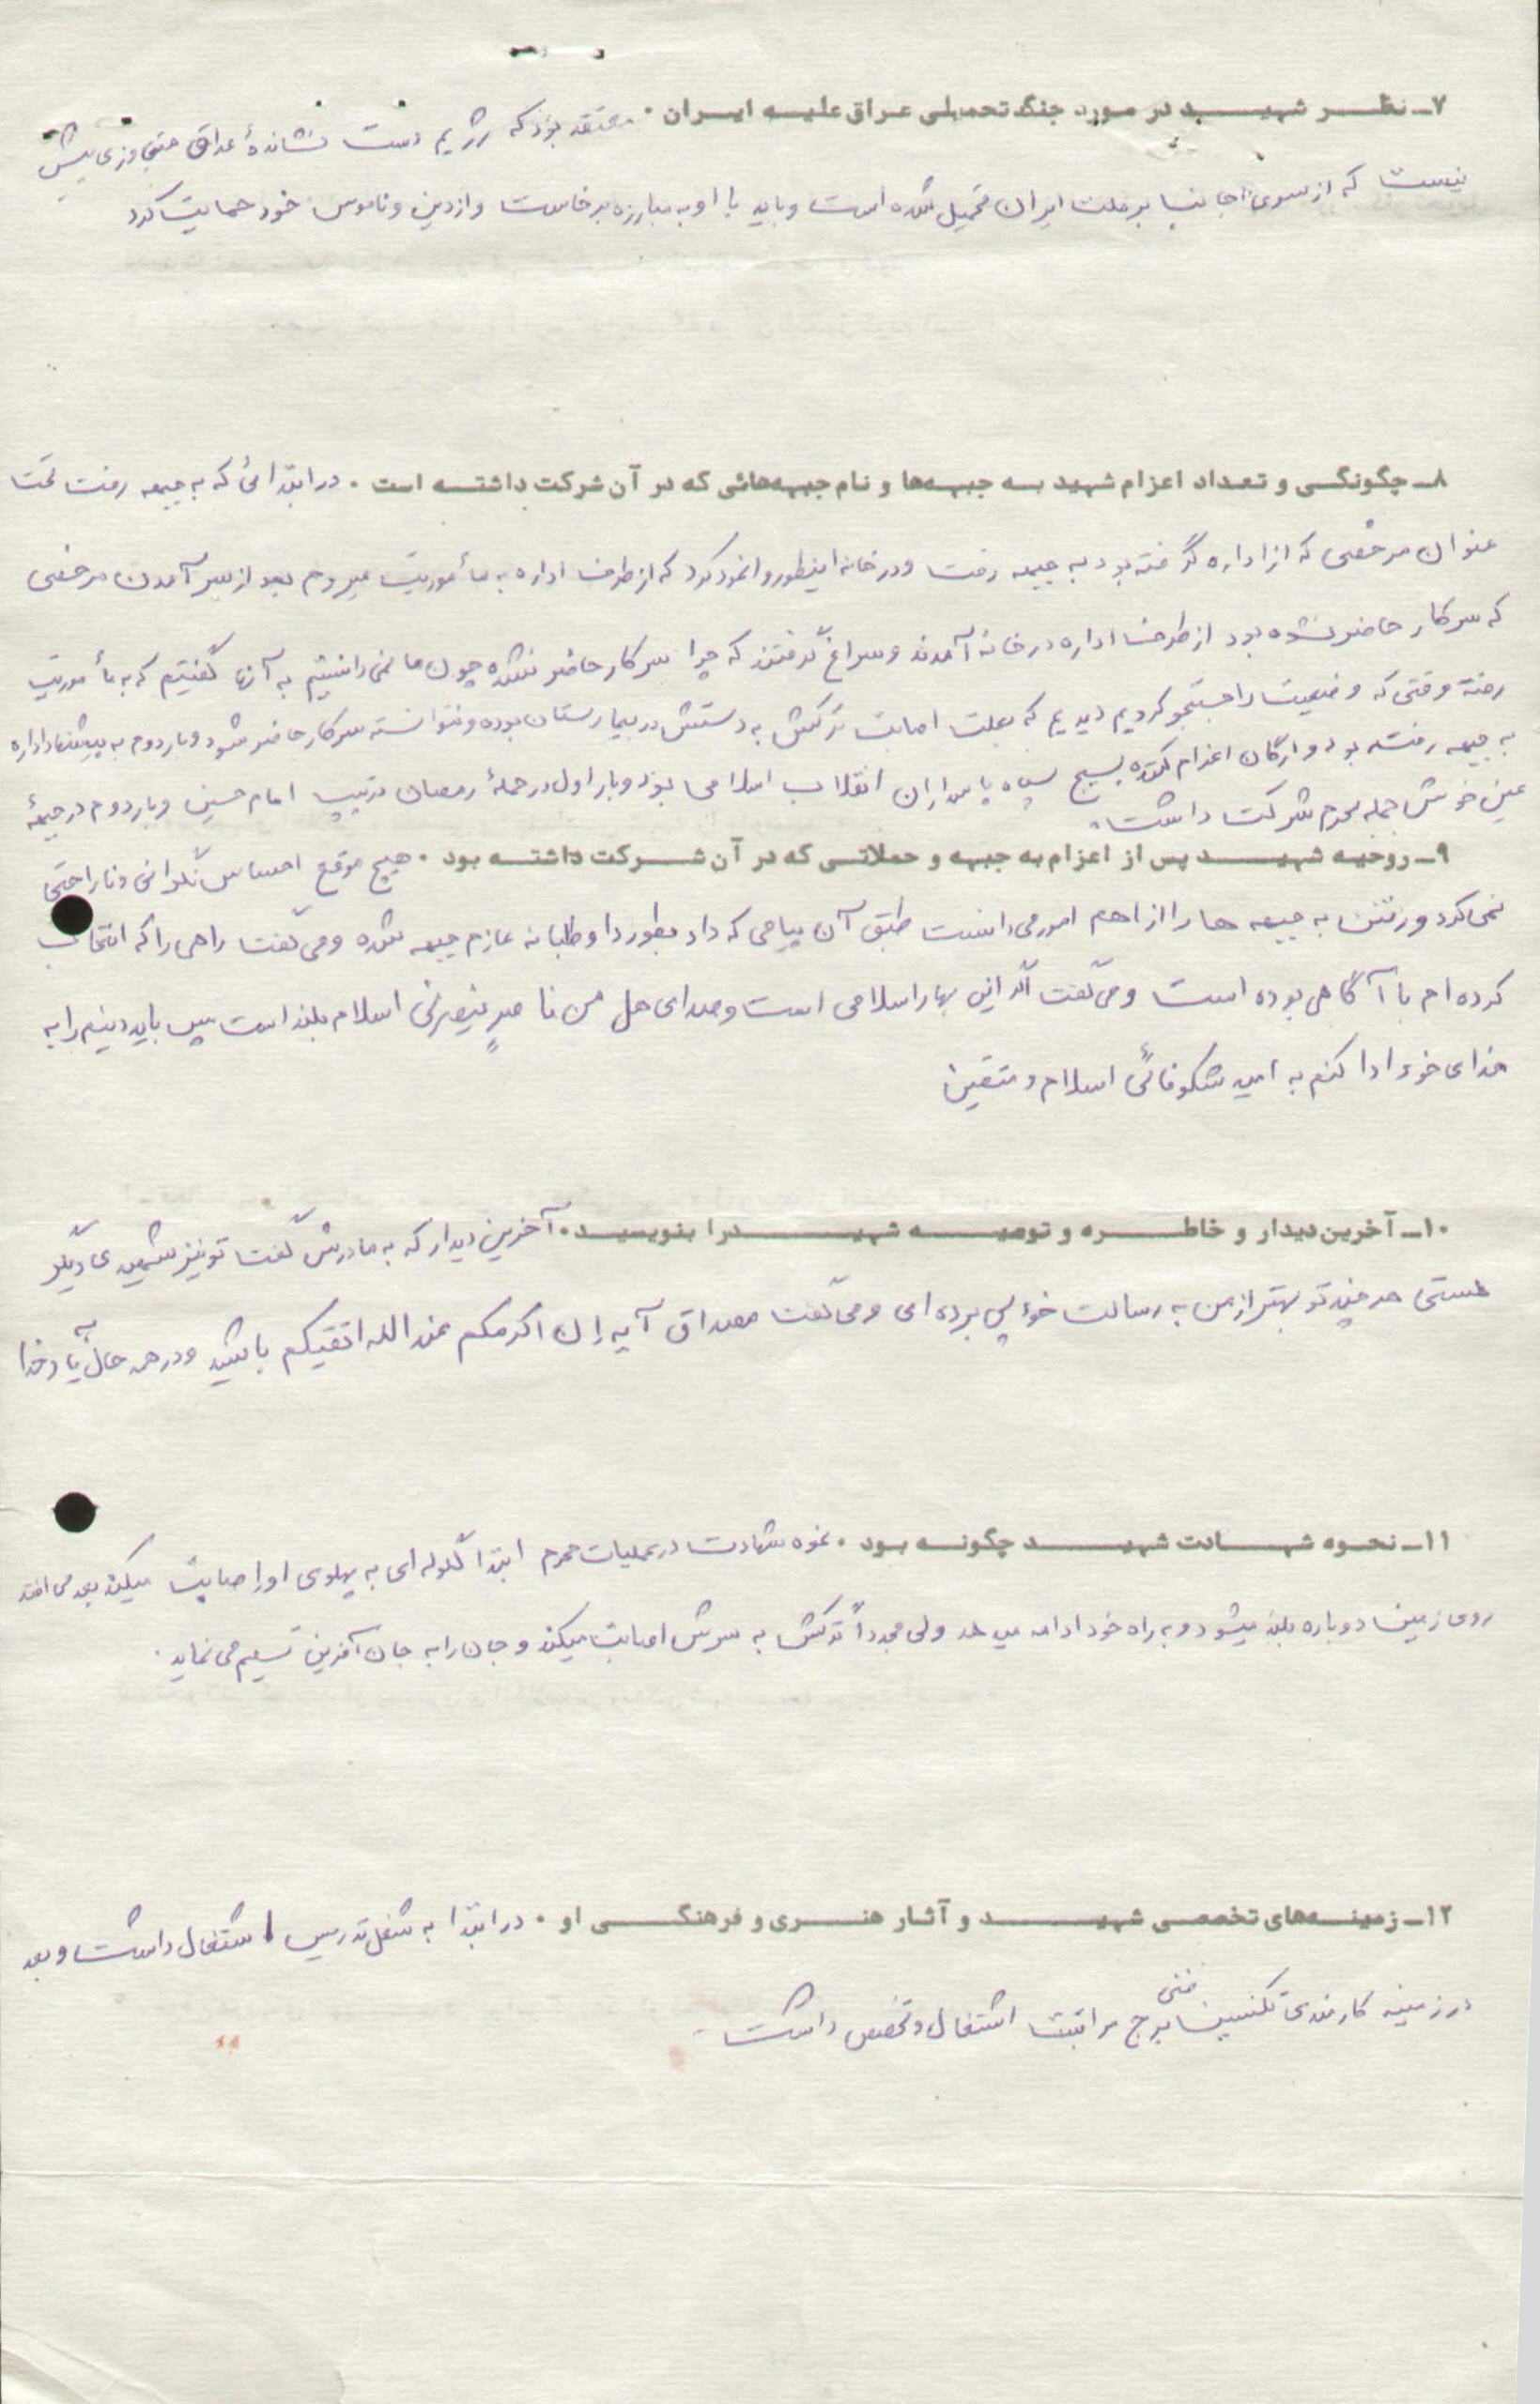 ۷ـ نظر شهید در مورد جنگ تحمیلی عراق علیه ایران . معتقد بود که رژیم دست نشاندهٔ عراق متجاوزی بیش
نیست که از سوی اجانب بر ملت ایران تحمیل شده است و باید با او به مبارزه برخاست و از دین و ناموس خود حمایت کرد
۸ـ چگونگی و تعداد اعزام شهید به جبهه‌ها و نام جبهه‌هائی که در آن شرکت داشته است . در ابتدائی که به جبهه رفت تحت
عنوان مرخصی که از اداره گرفته بود به جبهه رفت و در خانه اینطور وانمود کرد که از طرف اداره به مأموریت میروم بعد از سر آمدن مرخصی
که سر کار حاضر نشده بود از طرف اداره در خانه آمدند و سراغ گرفتند که چرا سر کار حاضر نشده چون ما نمی دانستیم به آنها گفتیم که به مأموریت
رفته وقتی که وضعیت را جستجو کردیم دیدیم که بعلت اصابت ترکش به دستش در بیمارستان بوده و نتوانسته سر کار حاضر شود و بار دوم به پیشنهاد اداره
به جبهه رفته بود و ارگان اعزام کننده بسیج سپاه پاسداران انقلاب اسلامی بود و بار اول در حملهٔ رمضان در تیپ امام حسین و بار دوم در جبههٔ
عین خوش حمله محرم شرکت داشت.
۹ـ روحیه شهید پس از اعزام به جبهه و حملاتی که در آن شرکت داشته بود . هیچ موقع احساس نگرانی و ناراحتی
نمی کرد و رفتن به جبهه ها را از اهم امور می دانست طبق آن پیامی که داد بطور داوطلبانه عازم جبهه شده و می گفت راهی را که انتخاب
کرده ام با آگاهی بوده است و می گفت اگر این بهار اسلامی است و صدای هل من ناصر ینصرنی اسلام بلند است پس باید دینم را به
خدای خود ادا کنم به امید شکوفائی اسلام و متقین
۱۰ـ آخرین دیدار و خاطره و توصیه شهید را بنویسید . آخرین دیدار که به مادرش گفت تو نیز شهیدی دیگر
هستی هر چند تو بهتر از من به رسالت خود پی برده ای و می گفت مصداق آیه إن اکرمکم عند الله اتقیکم باشید و در همه حال به یاد خدا
۱۱ـ نحوه شهادت شهید چگونه بود . نحوه شهادت در عملیات محرم ابتدا گلوله ای به پهلوی او إصابت میکند بعد می افتد
روی زمین دوباره بلند میشود و به راه خود ادامه میدهد ولی مجدداً ترکش به سرش اصابت میکند و جان را به جان آفرین تسلیم می نماید .
۱۲ـ زمینه‌های تخصصی شهید و آثار هنری و فرهنگی او . در ابتدا به شغل تدریس اشتغال داشت و بعد
در زمینه کارمندی تکنسین فنی برج مراقبت اشتغال و تخصص داشت